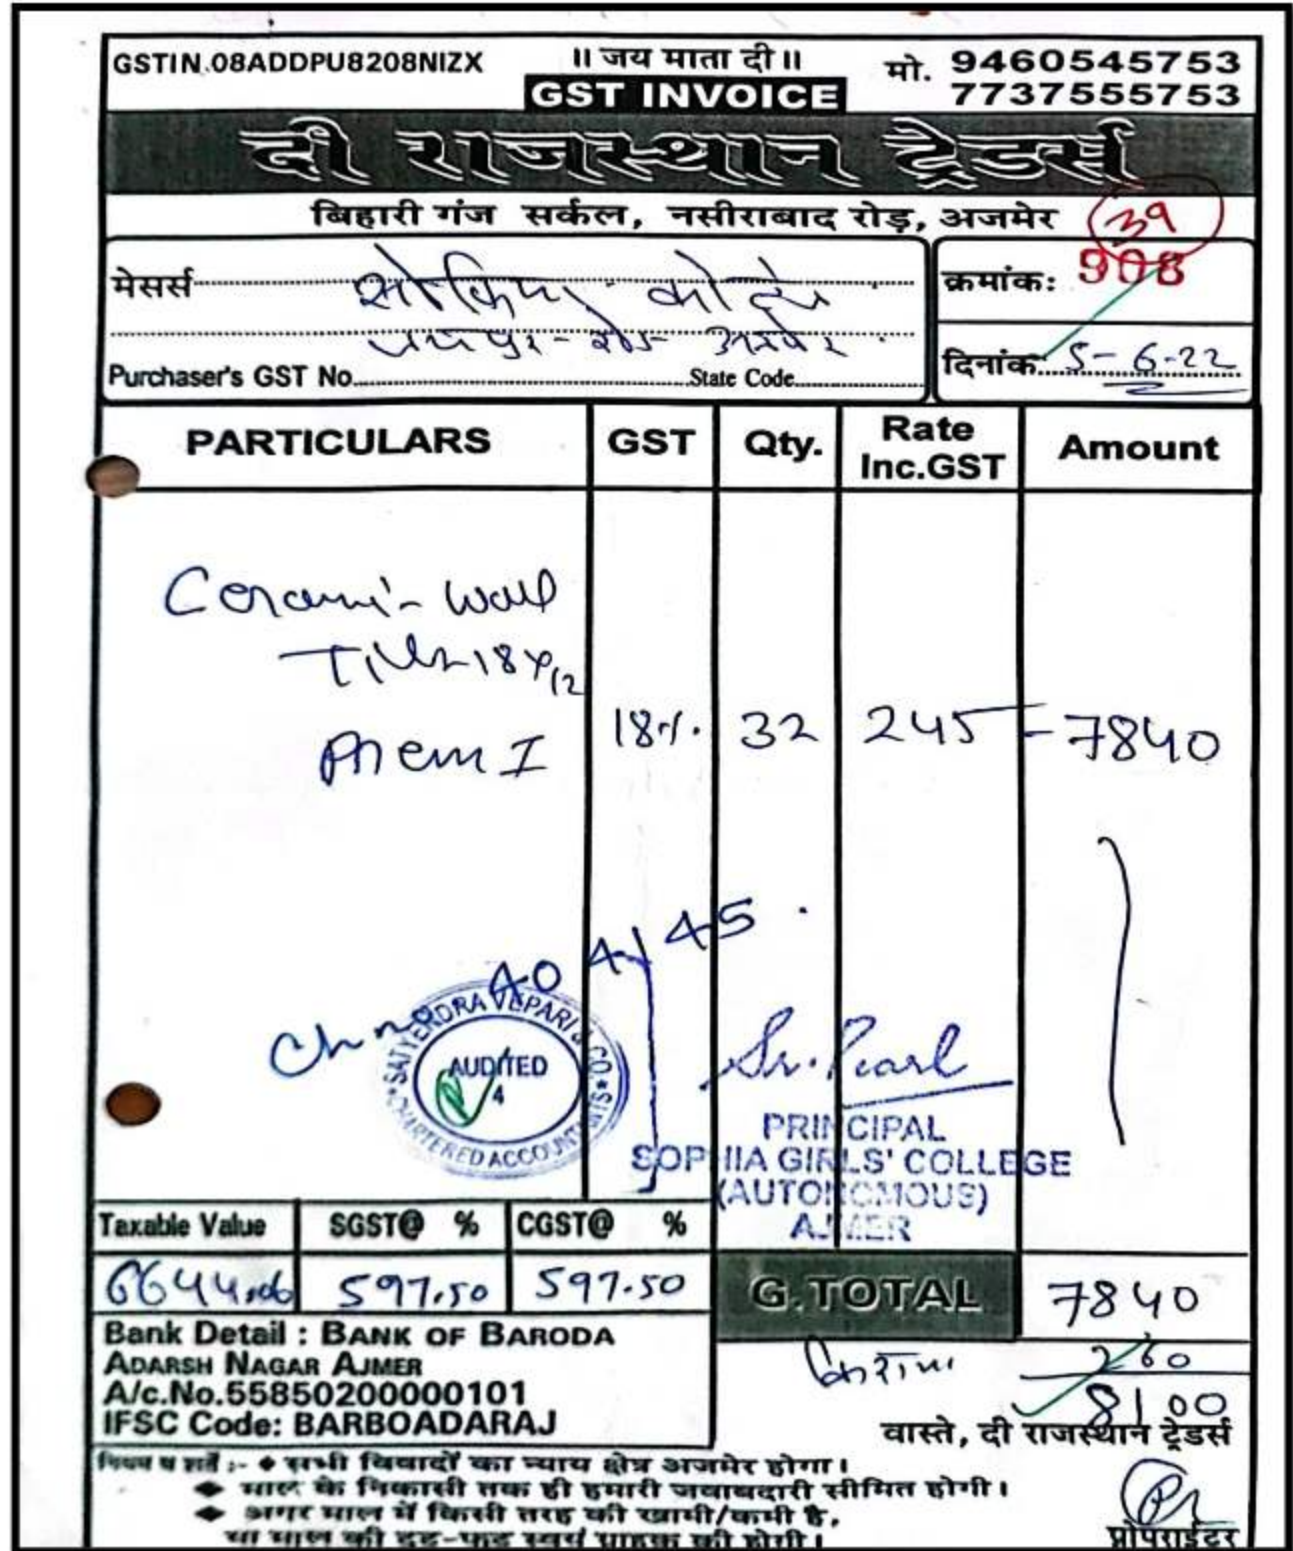 GSTIN.08ADDPU8208NIZX
॥ जय माता दी ॥
मो. 9460545753
7737555753
GST INVOICE
दी राजस्थान ट्रेडर्स
बिहारी गंज सर्कल, नसीराबाद रोड़, अजमेर
39
मेसर्स
क्रमांक: 908
रोड अजमेर
Purchaser's GST No. State Code
दिनांक 5-6-22
PARTICULARS GST Qty. Rate Inc.GST Amount
Wall
18x12
18%. 32 245 - 7840
Ch no 40 4145.
SATYENDRA VEPARI & CO.
CHARTERED ACCOUNTANTS
AUDITED
4
Sr. Pearl
PRINCIPAL
SOPHIA GIRLS' COLLEGE
(AUTONOMOUS)
AJMER
Taxable Value SGST@ % CGST@ %
6644.06 597.50 597.50
G.TOTAL 7840
किराया 260
8100
Bank Detail : BANK OF BARODA
ADARSH NAGAR AJMER
A/c.No.55850200000101
IFSC Code: BARBOADARAJ
वास्ते, दी राजस्थान ट्रेडर्स
नियम व शर्तें :- ◆ सभी विवादों का न्याय क्षेत्र अजमेर होगा।
◆ माल के निकासी तक ही हमारी जवाबदारी सीमित होगी।
◆ अगर माल में किसी तरह की खामी/कमी है,
या माल की टूट-फूट स्वयं ग्राहक की होगी।
प्रोपराईटर